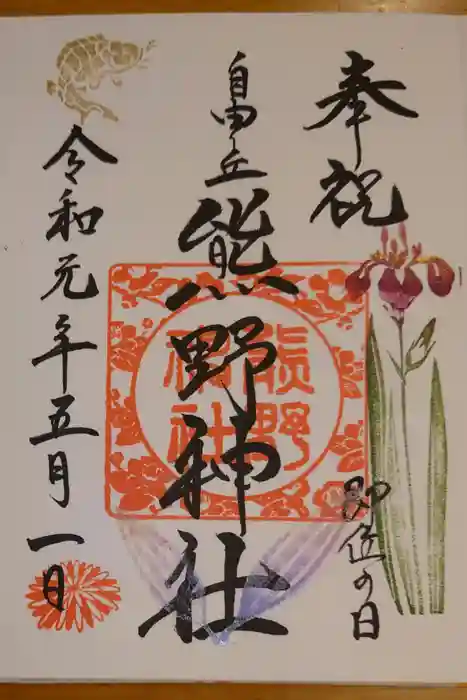 奉祝
即位の日
自由丘
熊野神社
熊野
神社
令和元年五月一日